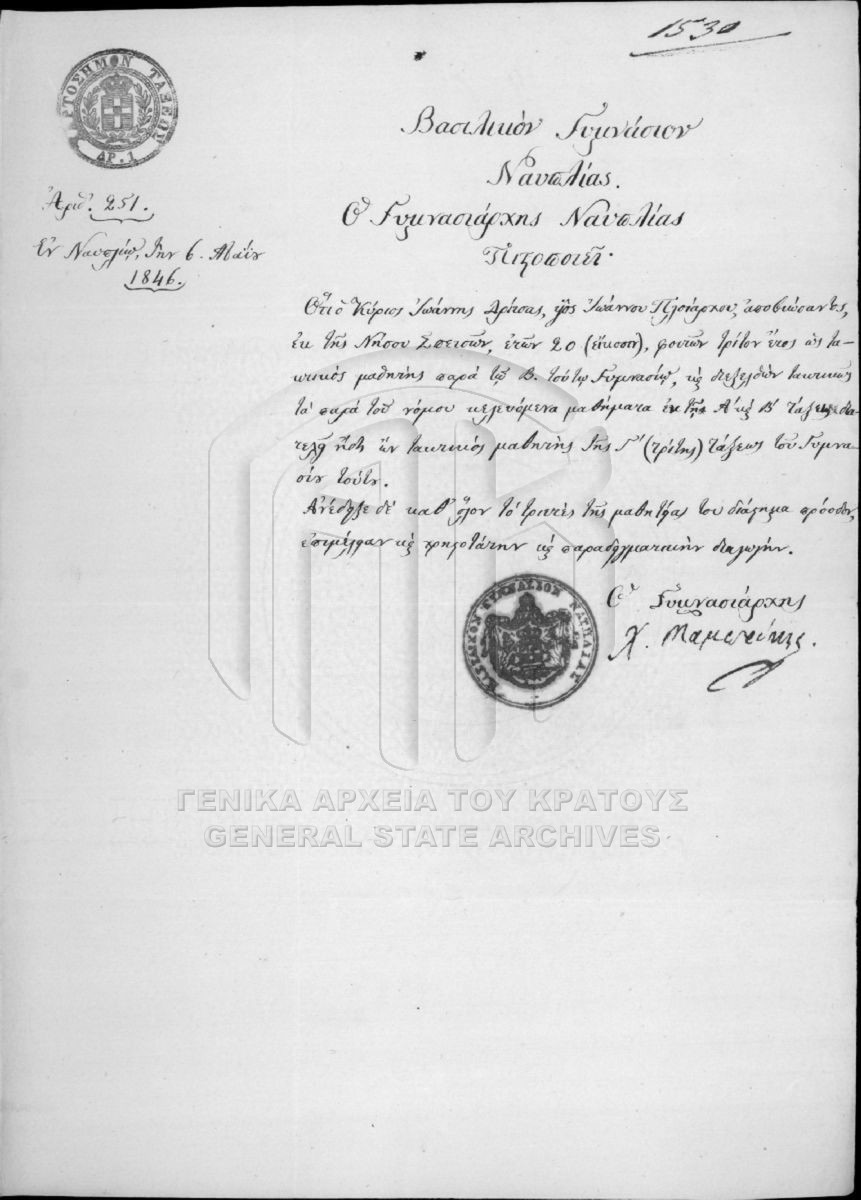 1530
ΧΑΡΤΟΣΗΜΟΝ ΤΑΞΕΩΝ
ΔΡ. 1
Βασιλικὸν Γυμνάσιον
Ναυπλίας.
Ἀριθ. 251.
Ὁ Γυμνασιάρχης Ναυπλίας
Ἐν Ναυπλίῳ, τὴν 6. Μαΐου
1846.
Πιστοποιεῖ·
Ὅτι ὁ Κύριος Ἰωάννης υἱὸς Ἰωάννου Πλοιάρχου, ἀποβιώσαντος,
ἐκ τῆς Νήσου Σπετσῶν, ἐτῶν 20 (εἴκοσιν), φοιτῶν τρίτον ἔτος ὡς τα-
κτικὸς μαθητὴς παρὰ τῷ Β. τούτῳ Γυμνασίῳ, καὶ διεξελθὼν τακτικῶς
τὰ παρὰ τοῦ νόμου κελευόμενα μαθήματα ἐν τῇ Α καὶ Β τάξει, δια-
τελεῖ ἤδη ὢν τακτικὸς μαθητὴς τῆς Γ (τρίτης) τάξεως τοῦ Γυμνα-
σίου τούτου.
Ἀνέδειξε δὲ καθ' ὅλον τὸ τριετὲς τῆς μαθητείας του διάστημα πρόοδον,
ἐπιμέλειαν καὶ χρηστοτάτην καὶ παραδειγματικὴν διαγωγήν.
Ὁ Γυμνασιάρχης
Χ.
ΒΑΣΙΛΙΚΟΝ ΓΥΜΝΑΣΙΟΝ ΝΑΥΠΛΙΑΣ
ΓΕΝΙΚΑ ΑΡΧΕΙΑ ΤΟΥ ΚΡΑΤΟΥΣ
GENERAL STATE ARCHIVES